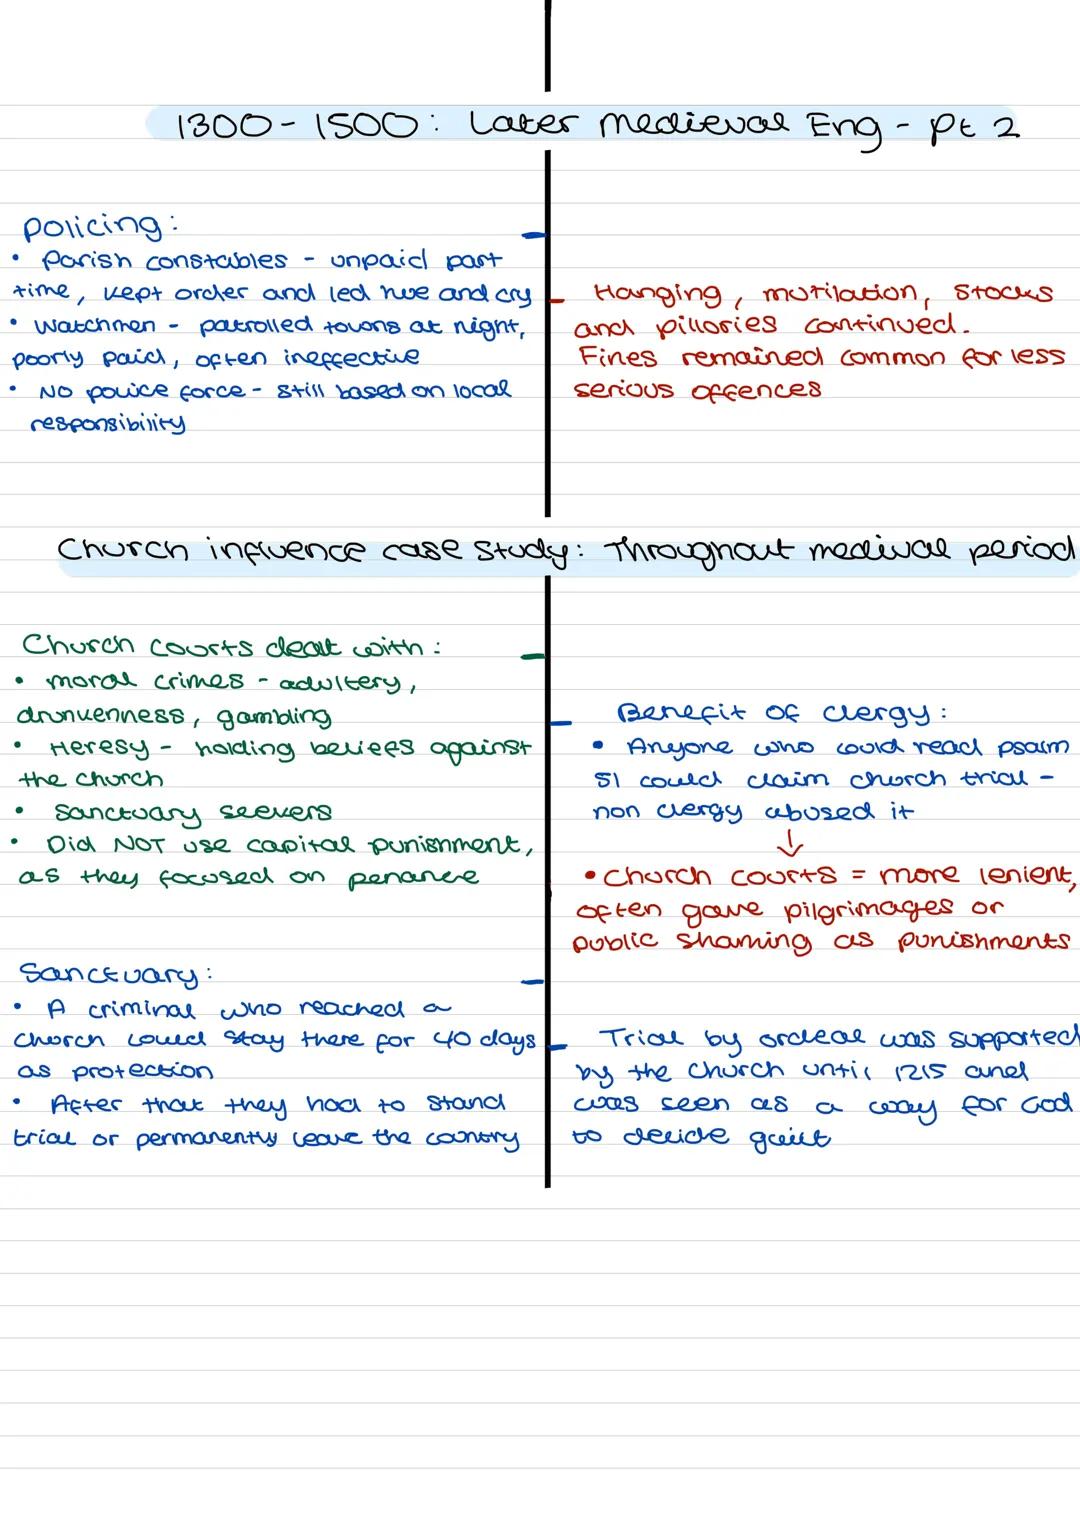 1300-1500: Later medieval Eng - Pt 2
Policing:
• Parish constables - unpaid part
time, kept order and led hue and cry
• Watchmen - patrolled towns at night,
poorly paid, often ineffective
• No police force - still based on local
responsibility
Hanging, mutilation, stocks
and pillories continued.
Fines remained common for less
serious offences
Church influence case study: Throughout medival period
Church courts dealt with:
• moral crimes - adultery,
drunkenness, gambling
• Heresy - holding beliefs against
the church
• Sanctuary seekers
• Did NOT use capital punishment,
as they focused on penance
Sanctuary:
• A criminal who reached a
church could stay there for 40 days
as protection
• After that they had to stand
trial or permanently leave the country
Benefit of clergy:
• Anyone who could read psalm
51 could claim church trial -
non clergy abused it
↓
• Church courts = more lenient,
often gave pilgrimages or
public shaming as punishments
Trial by ordeal was supported
by the church until 1215 and
was seen as a way for God
to decide guilt